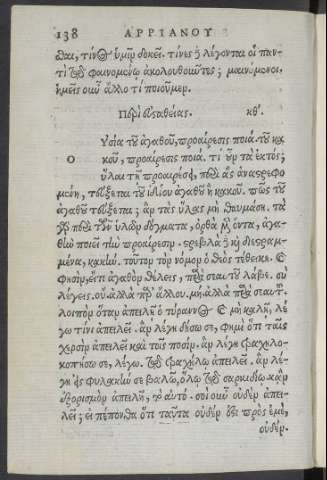 138 ΑΡΡΙΑΝΟΥ
θαι, τίνος ὑμῖν δοκεῖ. τίνες ἢ λέγονται οἱ παν-
τὶ τῷ φαινομένῳ ἀκολουθοῦντες; μαινόμενοι.
ἡμεῖς οὖν ἄλλο τι ποιοῦμεν.
Περὶ εὐσταθείας. κθ'.
Ο Υσία τοῦ ἀγαθοῦ, προαίρεσις ποιά. τοῦ κα-
κοῦ, προαίρεσις ποιά. τί οὖν τὰ ἐκτός;
ὗλαι τῇ προαιρέσει, περὶ ἃς ἀναστρεφο-
μένη, τεύξεται τοῦ ἰδίου ἀγαθοῦ ἢ κακοῦ. πῶς τοῦ
ἀγαθοῦ τεύξεται; ἂν τὰς ὕλας μὴ θαυμάσῃ. τὰ
γὰρ περὶ τῶν ὑλῶν δόγματα, ὀρθὰ μὲν ὄντα, ἀγα-
θὴν ποιεῖ τὴν προαίρεσιν. στρεβλὰ ἢ καὶ διεστραμ-
μένα, κακήν. τοῦτον τὸν νόμον ὁ θεὸς τέθεικε. καὶ
φησὶν, εἴ τι ἀγαθὸν θέλεις, παρὰ σεαυτοῦ λάβε. σὺ
λέγεις. οὐ ἀλλὰ παρ' ἄλλου. μὴ, ἀλλὰ παρὰ σεαυτοῦ.
λοιπὸν ὅταν ἀπειλῇ ὁ τύραννος, καὶ μὴ καλῇ, λέ
γω τίνι ἀπειλεῖ. ἂν λέγῃ δήσω σε, φημὶ ὅτι ταῖς
χερσὶν ἀπειλεῖ καὶ τοῖς ποσίν. ἂν λέγῃ τραχηλο-
κοπήσω σε, λέγω. τῷ τραχήλῳ ἀπειλεῖ. ἂν λέ-
γῃ εἰς φυλακήν σε βαλῶ, ὅλῳ τῷ σαρκιδίῳ. κἂν
ἐξορισμὸν ἀπειλῇ, τὸ αὐτό. σοὶ οὖν οὐδὲν ἀπει-
λεῖ; εἰ πέπονθα ὅτι ταῦτα οὐδέν ἐστι πρὸς ἐμὲ,
οὐδέν.